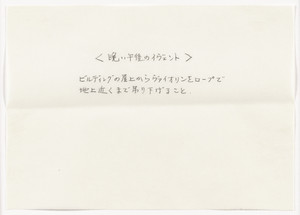 ＜ 晩い午後のイヴェント ＞
ビルディングの屋上からヴァイオリンをロープで
地上近くまで吊り下げること